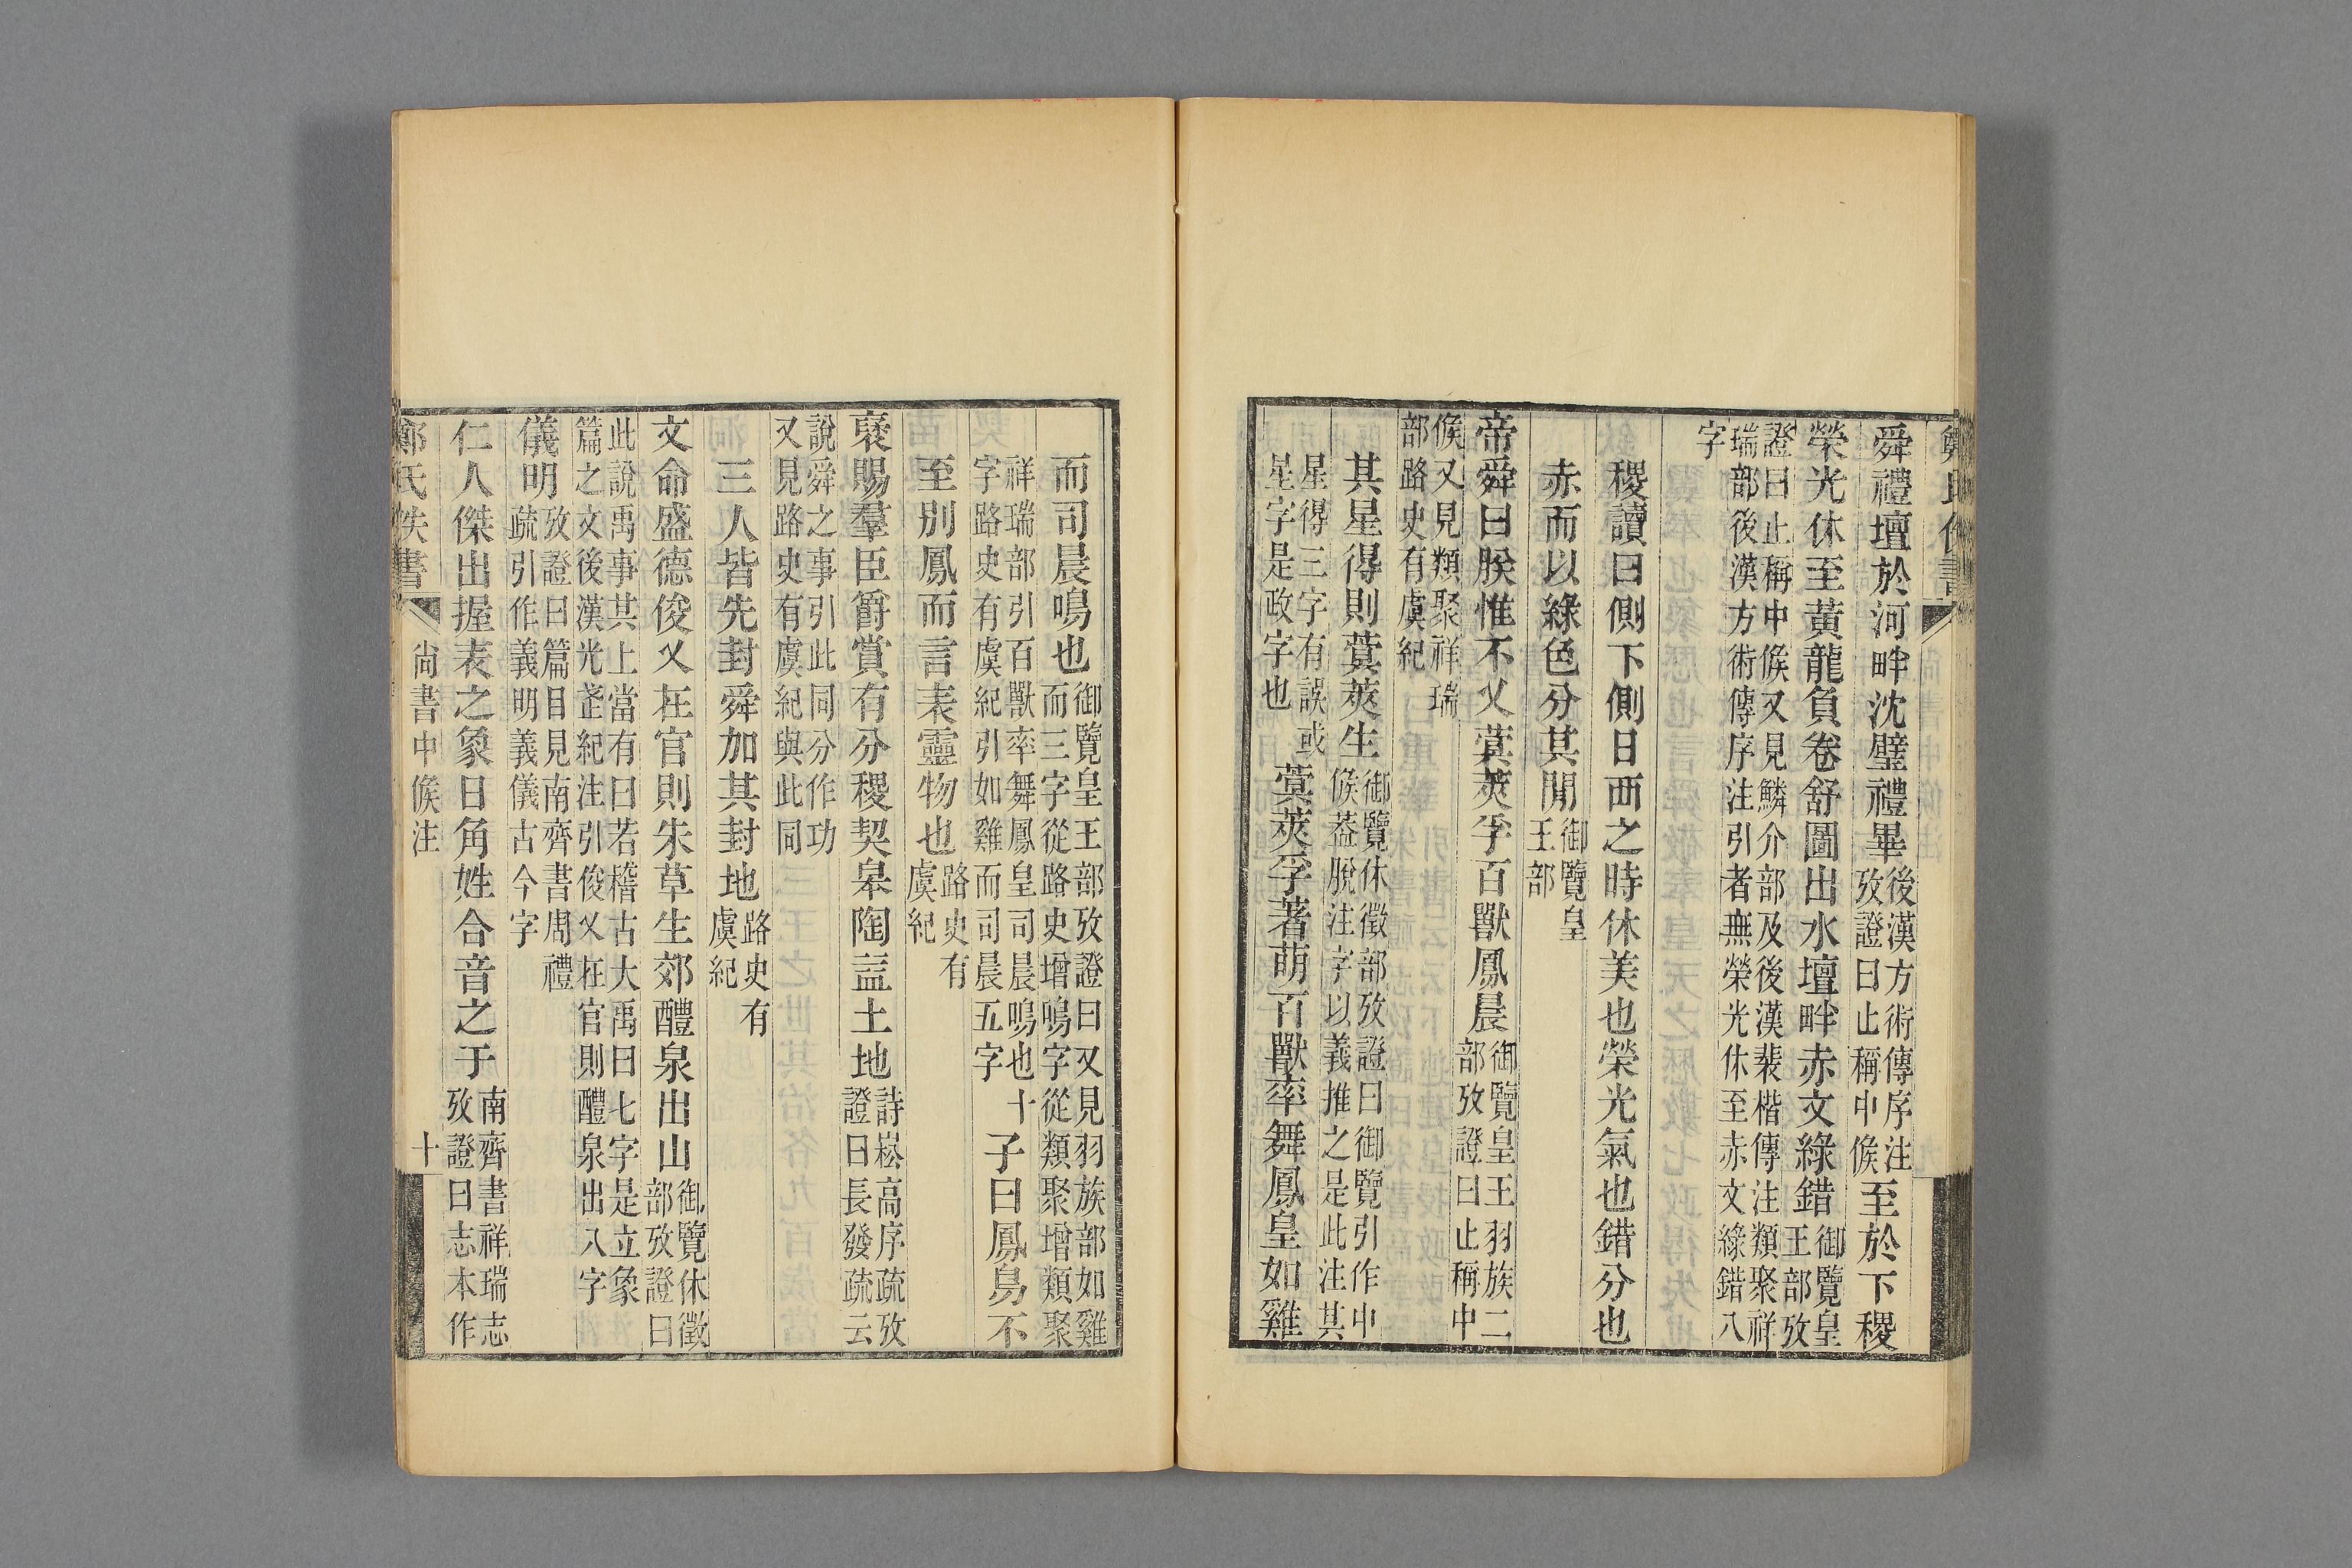 舜禮壇於河畔沈璧禮畢後漢方術傳序注攷證曰止稱中候至於下稷
榮光休至黃龍負卷舒圖出水壇畔赤文綠錯御覽皇王部攷
證曰止稱中候又見鱗介部及後漢裴楷傳注類聚祥瑞部後漢方術傳序注引者無榮光休至赤文綠錯八
字
稷讀曰側下側日西之時休美也榮光氣也錯分也
赤而以綠色分其閒御覽皇王部
帝舜曰朕惟不乂蓂莢孚百獸鳳晨御覽皇王羽族二部攷證曰止稱中
候又見類聚祥瑞部路史有虞紀
其星得則蓂莢生御覽休徵部攷證曰御覽引作中候葢脫注字以義推之是此注其
星得三字有誤或星字是政字也蓂莢孚著萌百獸率舞鳳皇如雞
而司晨鳴也御覽皇王部攷證曰又見羽族部如雞而三字從路史增鳴字從類聚增類聚
祥瑞部引百獸率舞鳳皇司晨鳴也十字路史有虞紀引如雞而司晨五字子曰鳳鳥不
至別鳳而言表靈物也路史有虞紀
襃賜羣臣爵賞有分稷契皋陶益土地詩崧高序疏攷證曰長發疏云
說舜之事引此同分作功又見路史有虞紀與此同
三人皆先封舜加其封地路史有虞紀
文命盛德俊乂在官則朱草生郊醴泉出山御覽休徵部攷證曰
此說禹事其上當有曰若稽古大禹曰七字是立象篇之文後漢光武紀注引俊乂在官則醴泉出八字
儀明攷證曰篇目見南齊書周禮疏引作義明義儀古今字
仁人傑出握表之象日角姓合音之于南齊書祥瑞志攷證曰志本作
鄭氏佚書
尚書中候注
十